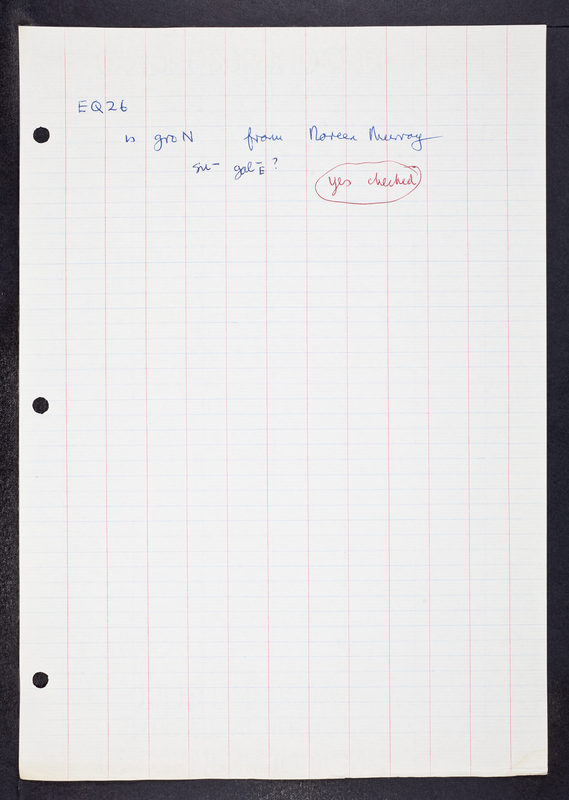 EQ26
is groN from Noreen Murray
su⁻ gal⁻E?
yes checked